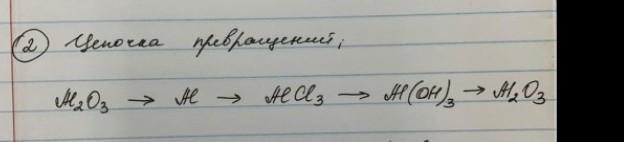 2 Цепочка превращений;
Al₂O₃ → Al → AlCl₃ → Al(OH)₃ → Al₂O₃